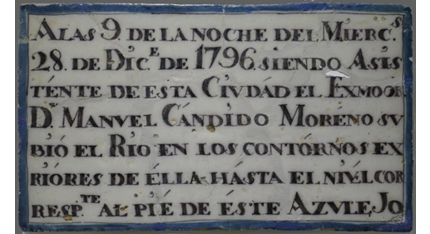 A LAS 9. DE LA NOCHE DEL MIERC.S
28. DE DIC.E DE 1796. SIENDO ASIS
TENTE DE ESTA CIVDAD EL EXMO OR
D.N MANVEL CANDIDO MORENO SV
BIÓ EL RIO EN LOS CONTORNOS EX
RIORES DE ÉLLA HASTA EL NIVÉL COR
RESP.TE AL PIÉ DE ÉSTE AZVLEJO